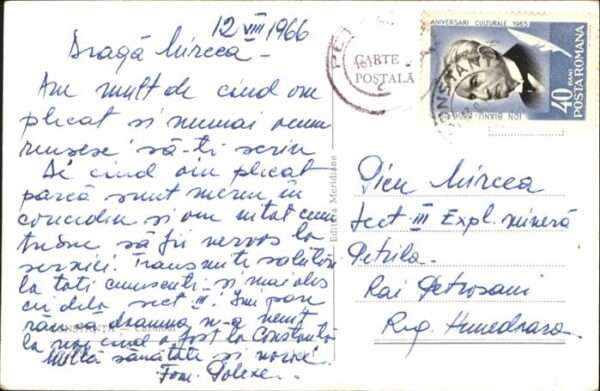 12 VIII 1966
Dragă Mircea –
Am mult de cînd am
plecat și numai acum
reușesc să-ți scriu
De cînd am plecat
parcă sunt mereu în
concediu și am uitat cum
trebue să fii nervos la
servici. Transmite salutări
la toți cunoscuți și mai ales
cei dela sect III. Îmi pare
rău că doamna n-a venit
la noi cînd a fost la Constanța
Multă sănătate și noroc.
Fam.
CONSTANȚA
Editura Meridiane
CARTE
POȘTALĂ
ANIVERSARI CULTURALE 1965
ION BIANU
40 BANI
POSTA ROMANA
CONSTANTA
Dicu Mircea
Sect III Expl. minieră
Petrila
Rai Petroșani
Reg. Hunedoara